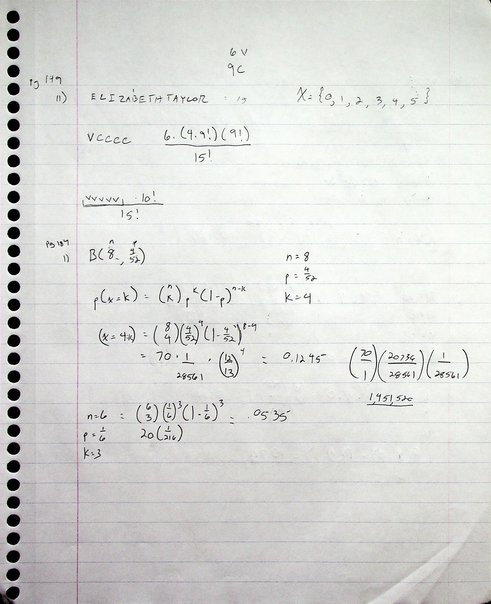 6 V
9 C
Pg 149
11) ELIZABETH TAYLOR = 15 X = {0, 1, 2, 3, 4, 5}
VCCCC 6·(9·9!)(9!) / 15!
VVVVV, 10! / 15!
1) B(8, 4/52) n = 8
p = 4/52
p(x=k) = (n k) p^k (1-p)^n-k K = 4
(x=4k) = (8 4)(4/52)^4 (1-4/52)^8-4
= 70 · 1/28561 · (12/13)^4 = 0.1245 (70/1)(20736/28561)(1/28561)
1,451,520
n=6 = (6 3)(1/6)^3 (1-1/6)^3 = .0535
p = 1/6 20(1/216)
K=3